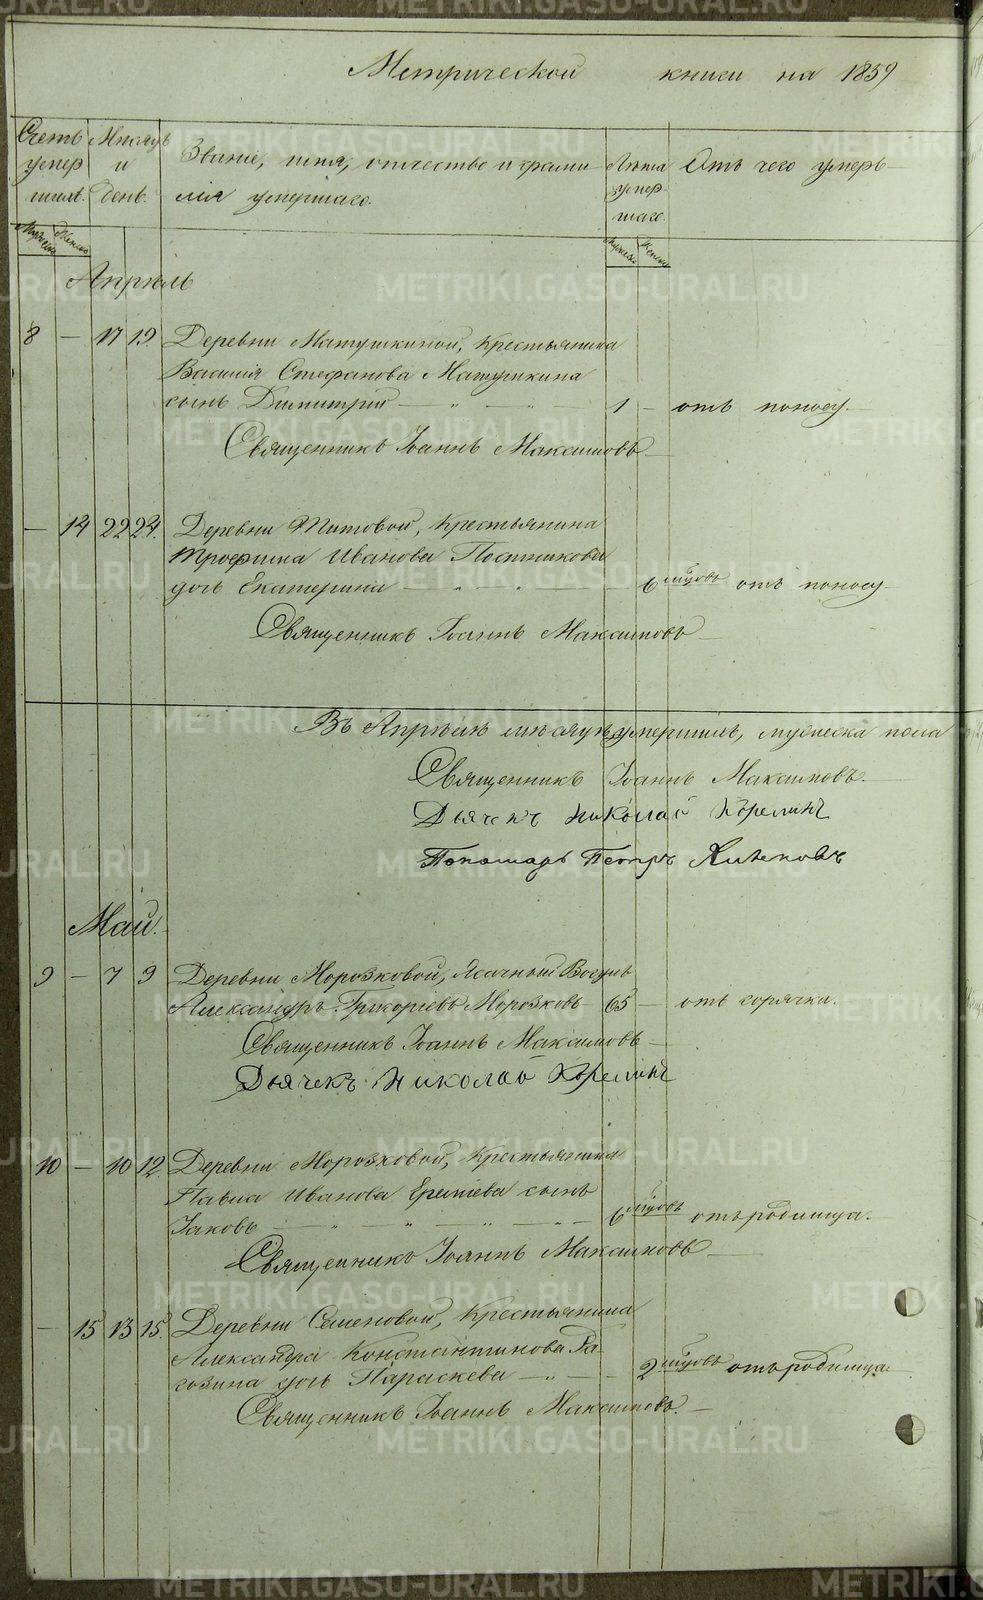 Метрической книги на 1859
Счетъ умер шихъ.
Мѣсяцъ и день.
Званіе, имя, отчество и фами
лія умершаго.
Лѣта умер шаго.
Отъ чего умеръ
Мужеска Женска
Мужеска Женска
Апрѣль
8 — 17 19 Деревни Матушкиной, Крестьянина
Василія Стефанова Матушкина
сынъ Димитрий — 1 — отъ поносу.
Священникъ Іоаннъ Максимовъ
— 14 22 24. Деревни Титовой, Крестьянина
Трофима Иванова Постникова
дочь Екатерина — 6 мѣсяцовъ отъ поносу
Священникъ Іоаннъ Максимовъ
Въ Апрѣлѣ мѣсяцѣ умершихъ, мужеска пола
Священникъ Іоаннъ Максимовъ.
Дьячекъ Николай
Пономарь Петръ
Май.
9 — 7 9 Деревни Морозковой, Ясачный Вогулъ
Александръ Григорьевъ Морозковъ 65 — отъ горячки.
Священникъ Іоаннъ Максимовъ
Дьячекъ Николай
10 — 10 12 Деревни Морозковой, Крестьянина
Павла Иванова Еремѣева сынъ
Іаковъ — 6 мѣсяцовъ отъ родимца.
Священникъ Іоаннъ Максимовъ
— 15 13 15. Деревни Семеновой, Крестьянина
Александра Константинова Га
гозина дочь Параскева — 2 мѣсяцовъ отъ родимца.
Священникъ Іоаннъ Максимовъ.
METRIKI.GASO-URAL.RU